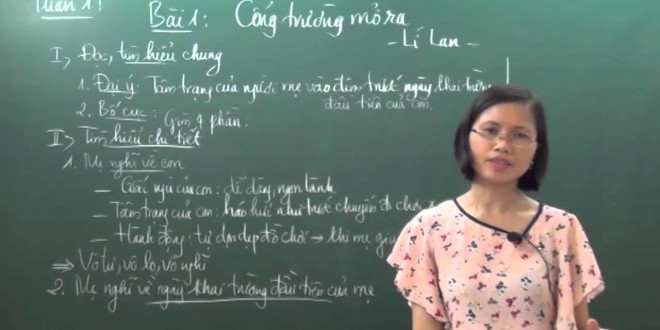 Tuần 1:
Bài 1: Cổng trường mở ra
- Lí Lan -
I, Đọc, tìm hiểu chung
1. Đại ý: Tâm trạng của người mẹ vào đêm trước ngày khai trường
đầu tiên của con.
2. Bố cục: Gồm 4 phần.
II, Tìm hiểu chi tiết
1. Mẹ nghĩ về con
- Giấc ngủ của con: dễ dàng, ngon lành
- Tâm trạng của con: háo hức như trước chuyến đi chơi
- Hành động: tự dọn dẹp đồ chơi → khi mẹ
⇒ Vô tư, vô lo, vô nghĩ
2. Mẹ nghĩ về ngày khai trường đầu tiên của mẹ